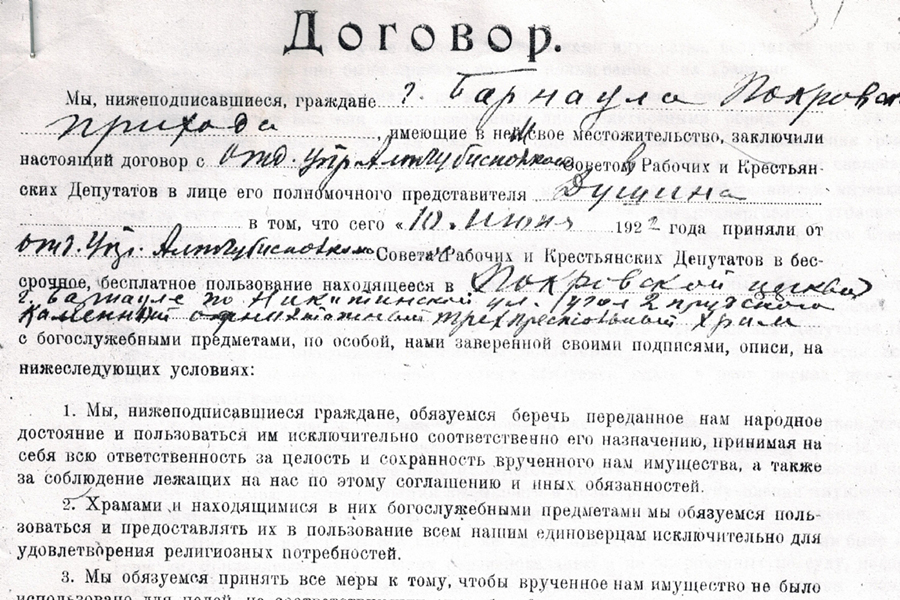 Договор.
Мы, нижеподписавшиеся, граждане г. Барнаула Покровск
прихода, имеющие в нем свое местожительство, заключили
настоящий договор с отд. Упр. Алтгубисполкома Советов Рабочих и Крестьян-
ских Депутатов в лице его полномочного представителя Душина
в том, что сего «10. июня 1922 года приняли от
отд. Упр. Алтгубисполкома Совета Рабочих и Крестьянских Депутатов в бес-
срочное, бесплатное пользование находящееся в Покровской церкви
г. Барнауле по Никитинской ул. угол 2 прудского
Каменный однаэтажный трехпрестольный храм
с богослужебными предметами, по особой, нами заверенной своими подписями, описи, на
нижеследующих условиях:
1. Мы, нижеподписавшиеся граждане, обязуемся беречь переданное нам народное
достояние и пользоваться им исключительно соответственно его назначению, принимая на
себя всю ответственность за целость и сохранность врученного нам имущества, а также
за соблюдение лежащих на нас по этому соглашению и иных обязанностей.
2. Храмами и находящимися в них богослужебными предметами мы обязуемся поль-
зоваться и предоставлять их в пользование всем нашим единоверцам исключительно для
удовлетворения религиозных потребностей.
3. Мы обязуемся принять все меры к тому, чтобы врученное нам имущество не было
использовано для целей, не соответствующих